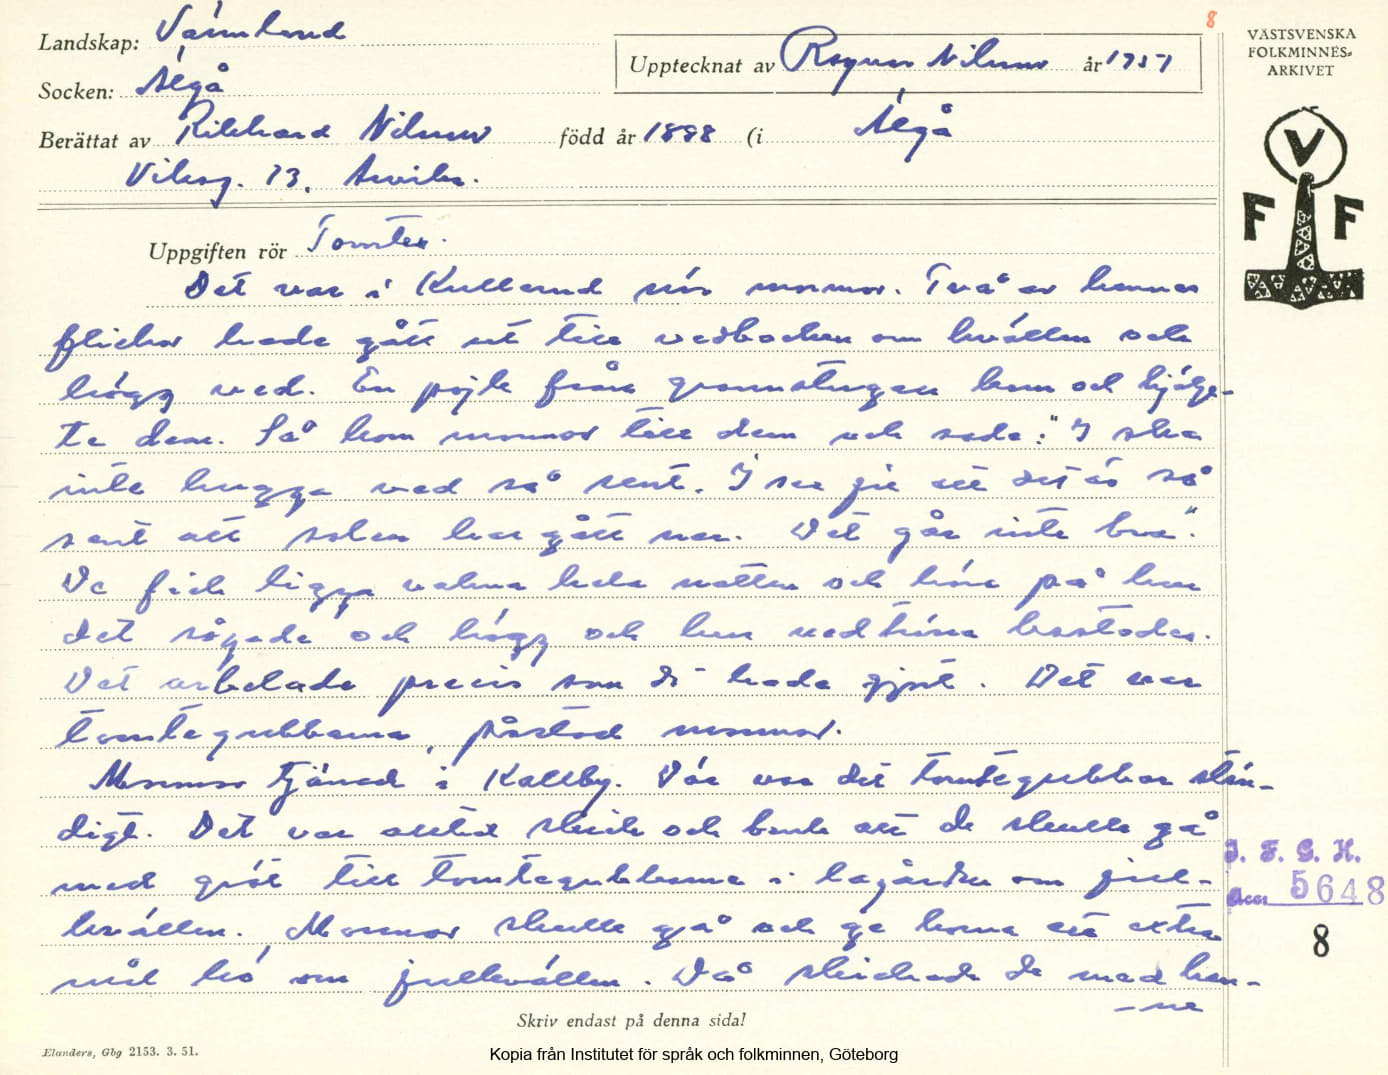 8
Landskap: Värmland
VÄSTSVENSKA
FOLKMINNES-
ARKIVET
Upptecknat av Ragnar Nilsson år 1957
Socken: Älgå
Berättat av Rikhard Nilsson född år 1888 (i Älgå
Viksg. 73, Arvika.
V
F F
Uppgiften rör Tomten.
Det var i Kullerud hos mormor. Två av hennes
flickor hade gått ut till vedbacken om kvällen och
högg ved. En pojk från grannstugan kom och hjälp-
te dem. Så kom mormor till dem och sade: "I ska
inte hugga ved så sent. I ser ju att det är så
sent att solen har gått ner. Det går inte bra".
De fick ligga vakna hela natten och höra på hur
det sågade och högg och hur vedträna kastades.
Det arbetade precis som di hade gjort. Det var
tomtegubbarna, påstod mormor.
Mormor tjänad i Kallby. Där var det tomtegubbar stän-
digt. Det var alltid skick och bruk att de skulle gå
med gröt till tomtegubbarna i lagårdn om jul-
kvällen. Mormor skulle gå och ge korna ett extra
mål hö om julkvällen. Då skickade de med hen-
-ne
I. F. G. H.
Acc. 5648
8
Skriv endast på denna sida!
Elanders, Gbg 2153. 3. 51.
Kopia från Institutet för språk och folkminnen, Göteborg